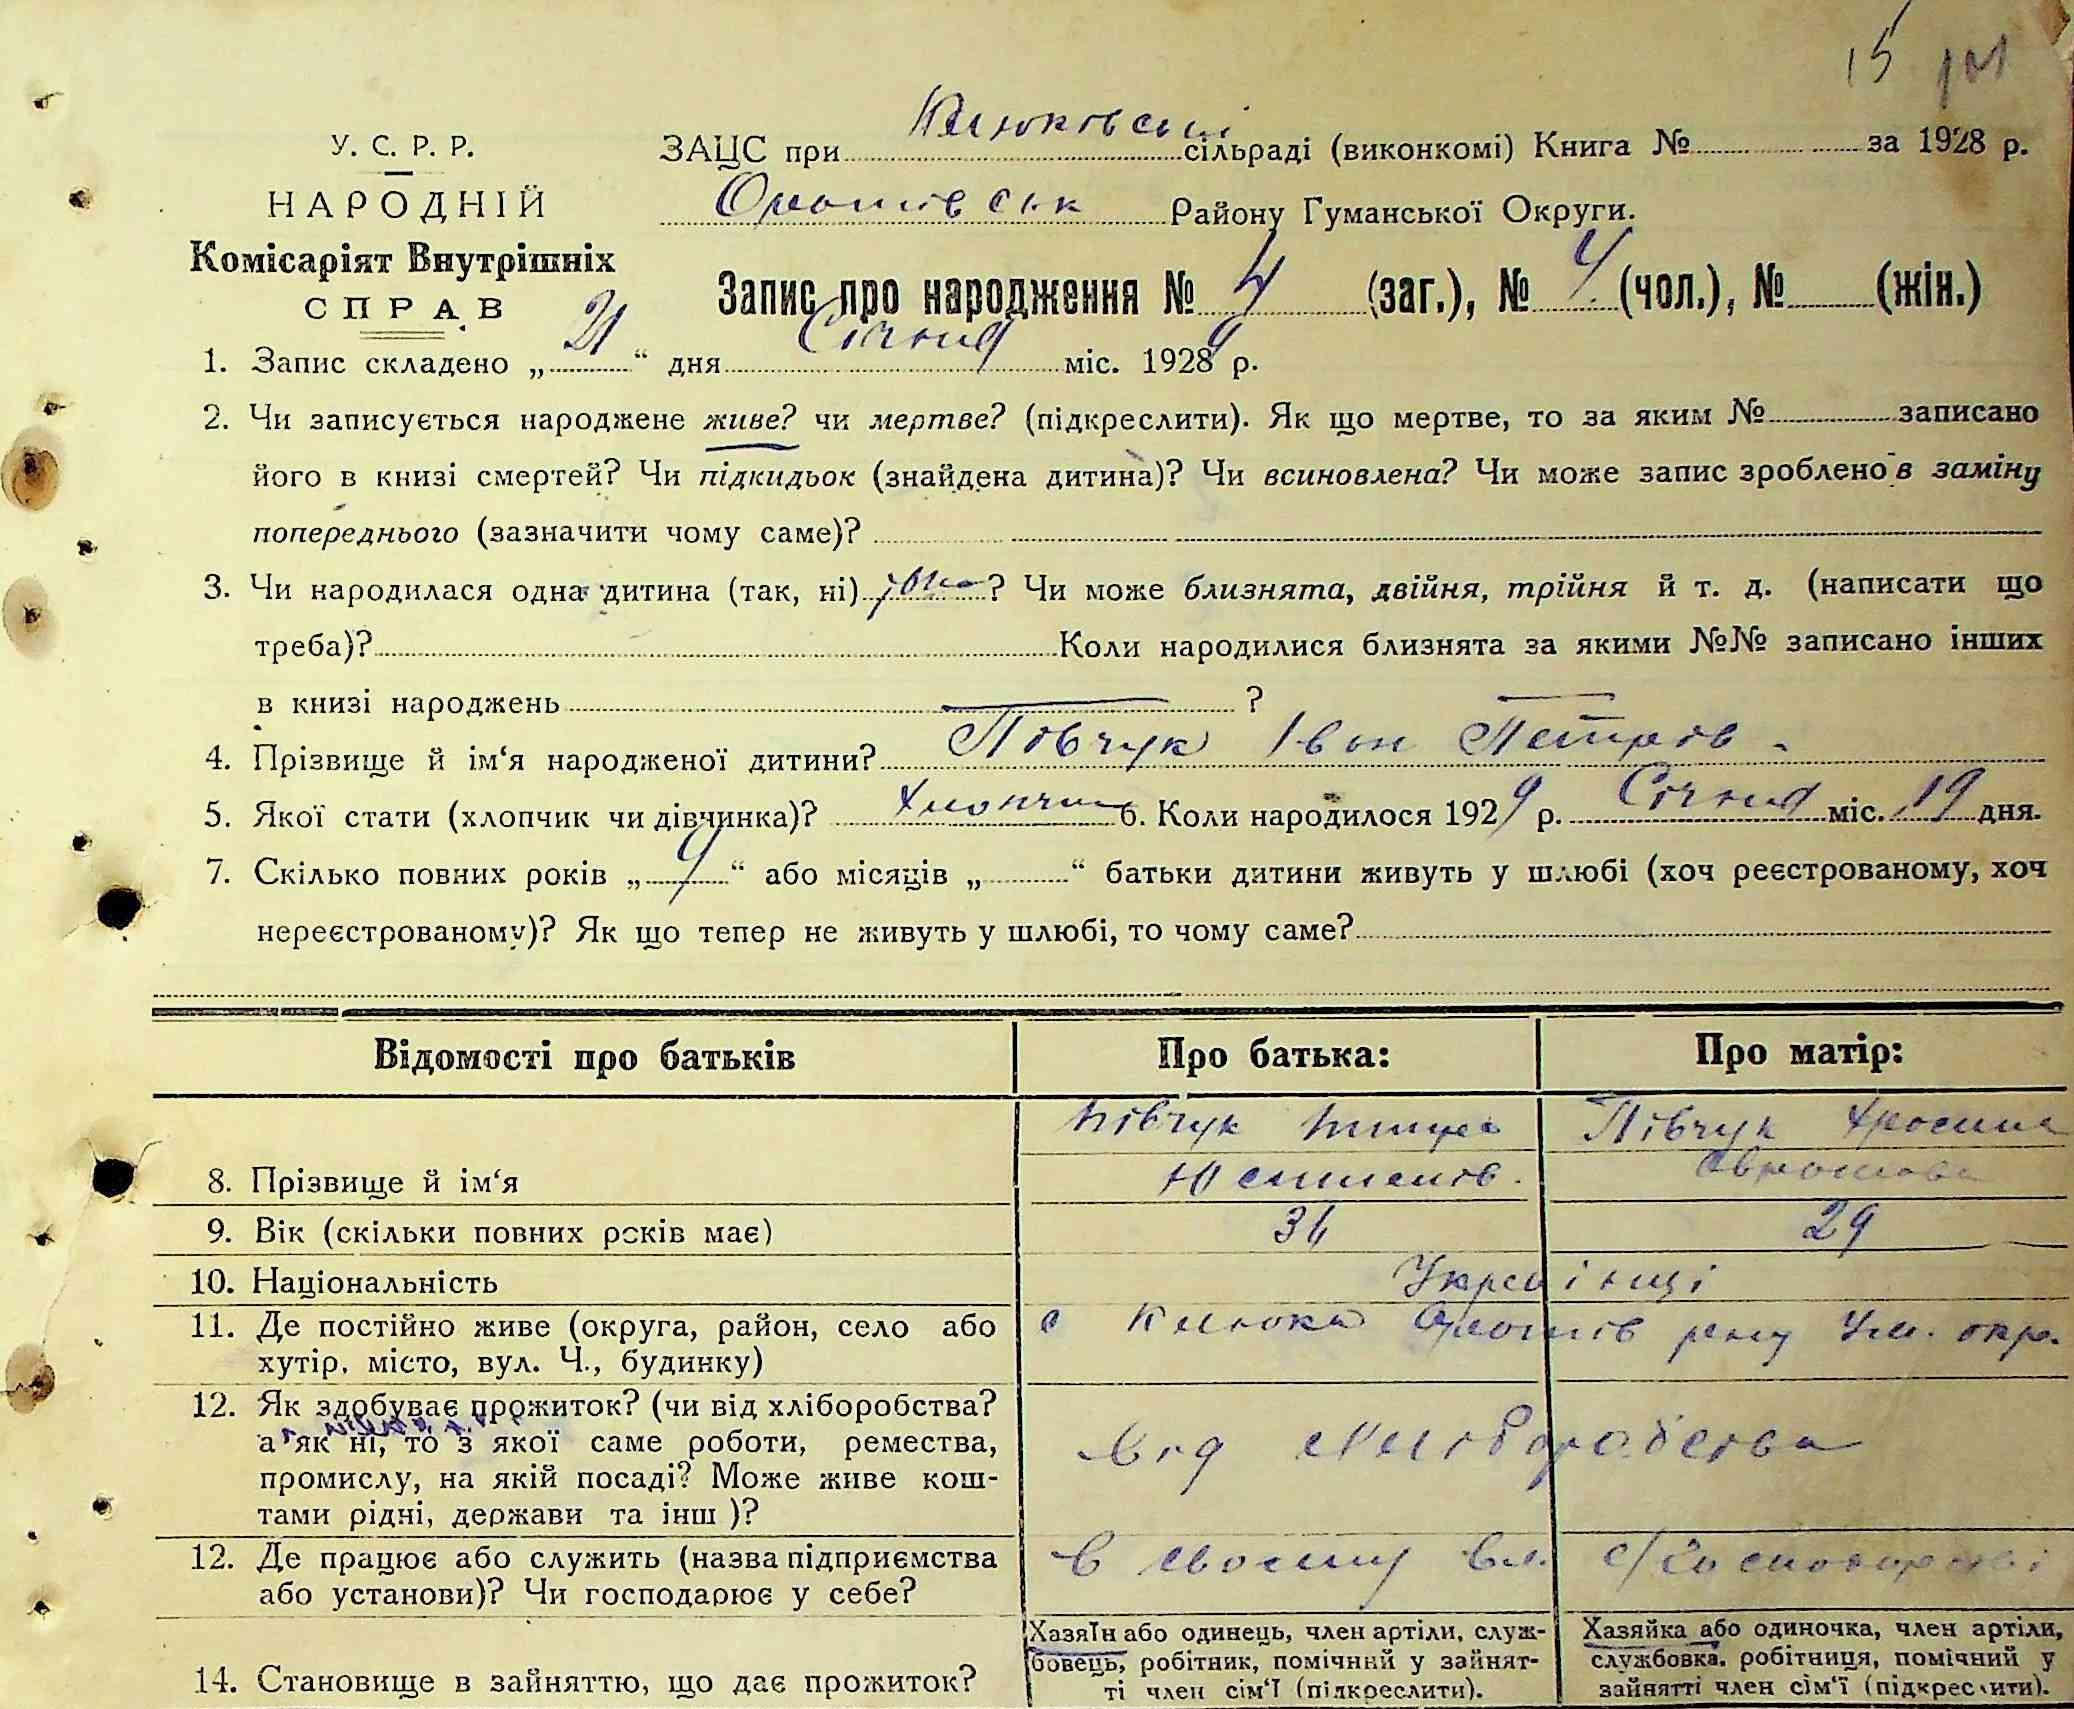 15
У. С. Р. Р.
НАРОДНІЙ
Комісаріят Внутрішніх
СПРАВ
ЗАЦС при Клюковській сільраді (виконкомі) Книга № за 1928 р.
Оратівськ Району Гуманської Округи.
Запис про народження № 4 (заг.), № 4 (чол.), № (жін.)
1. Запис складено „ 21 “ дня Січня міс. 1929 р.
2. Чи записується народжене живе? чи мертве? (підкреслити). Як що мертве, то за яким № записано
його в книзі смертей? Чи підкидьок (знайдена дитина)? Чи всиновлена? Чи може запис зроблено в заміну
попереднього (зазначити чому саме)?
3. Чи народилася одна дитина (так, ні) ? Чи може близнята, двійня, трійня й т. д. (написати що
треба)? Коли народилися близнята за якими №№ записано інших
в книзі народжень ?
4. Прізвище й ім‘я народженої дитини? Півчук Іван Петрів
5. Якої стати (хлопчик чи дівчинка)? Хлопчик 6. Коли народилося 1929 р. Січня міс. 19 дня.
7. Скілько повних років „ 9 “ або місяців „ “ батьки дитини живуть у шлюбі (хоч реєстрованому, хоч
нереєстрованому)? Як що тепер не живуть у шлюбі, то чому саме?
Відомості про батьків Про батька: Про матір:
8. Прізвище й ім‘я Півчук Півчук
9. Вік (скільки повних років має) 34 29
10. Національність Українці
11. Де постійно живе (округа, район, село або
хутір, місто, вул. Ч., будинку)
с Клюки Оратів рну Ум. окр.
12. Як здобуває прожиток? (чи від хліборобства?
а як ні, то з якої саме роботи, ремества,
промислу, на якій посаді? Може живе кош-
тами рідні, держави та інш )?
Від хліборобства
12. Де працює або служить (назва підприємства
або установи)? Чи господарює у себе?
в своєму вл. с/господарстві
14. Становище в зайняттю, що дає прожиток?
Хазяїн або одинець, член артіли, служ-
бовець, робітник, помічний у зайнят-
ті член сім‘ї (підкреслити).
Хазяйка або одиночка, член артіли,
службовка, робітниця, помічний у
зайнятті член сім‘ї (підкреслити).